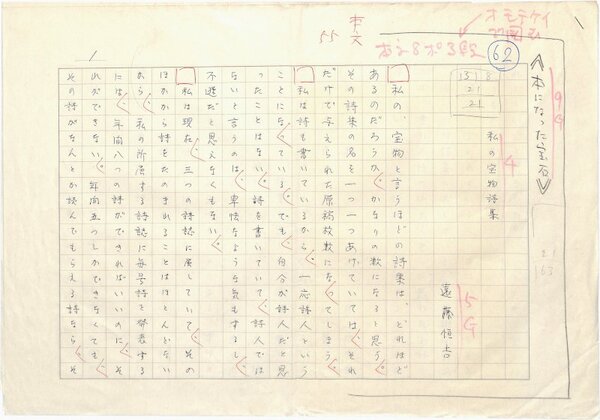 本文
55
オモテケイ
本文8ポ
62
13 8
21
21
《本になった宝石》
9G
私の宝物詩集
4
遠藤恒吉
15G
21
163
私の、宝物と言うほどの詩集は、どれほど
あるのだろうか。かなりの数になると思う。
その詩集の名を一つ一つあげていては、それ
だけで与えられた原稿枚数になってしまう。
私は詩も書いているから、一応詩人という
ことになっている。でも、自分が詩人だと思
ったことはない。詩を書いていて、詩人では
ないと言うのは、卑怯なような気もするし、
不遜だと思えなくもない。
私は現在、三つの詩誌に属していて、その
ほかから詩をたのまれることはほとんどない
から、私の所属する詩誌に毎号詩を発表する
には、年間八つの詩ができればいいのに、そ
れができない。年間五つしかできなくても、
その詩がなんとか読んでもらえる詩なら、そ